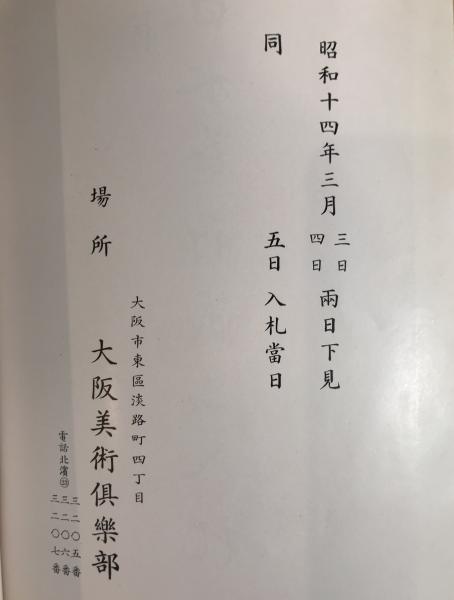 昭和十四年三月三日四日兩日下見
同五日入札當日
大阪市東區淡路町四丁目
場所大阪美術俱樂部
電話北濱㉓三二〇五番
三二〇六番
三二〇七番